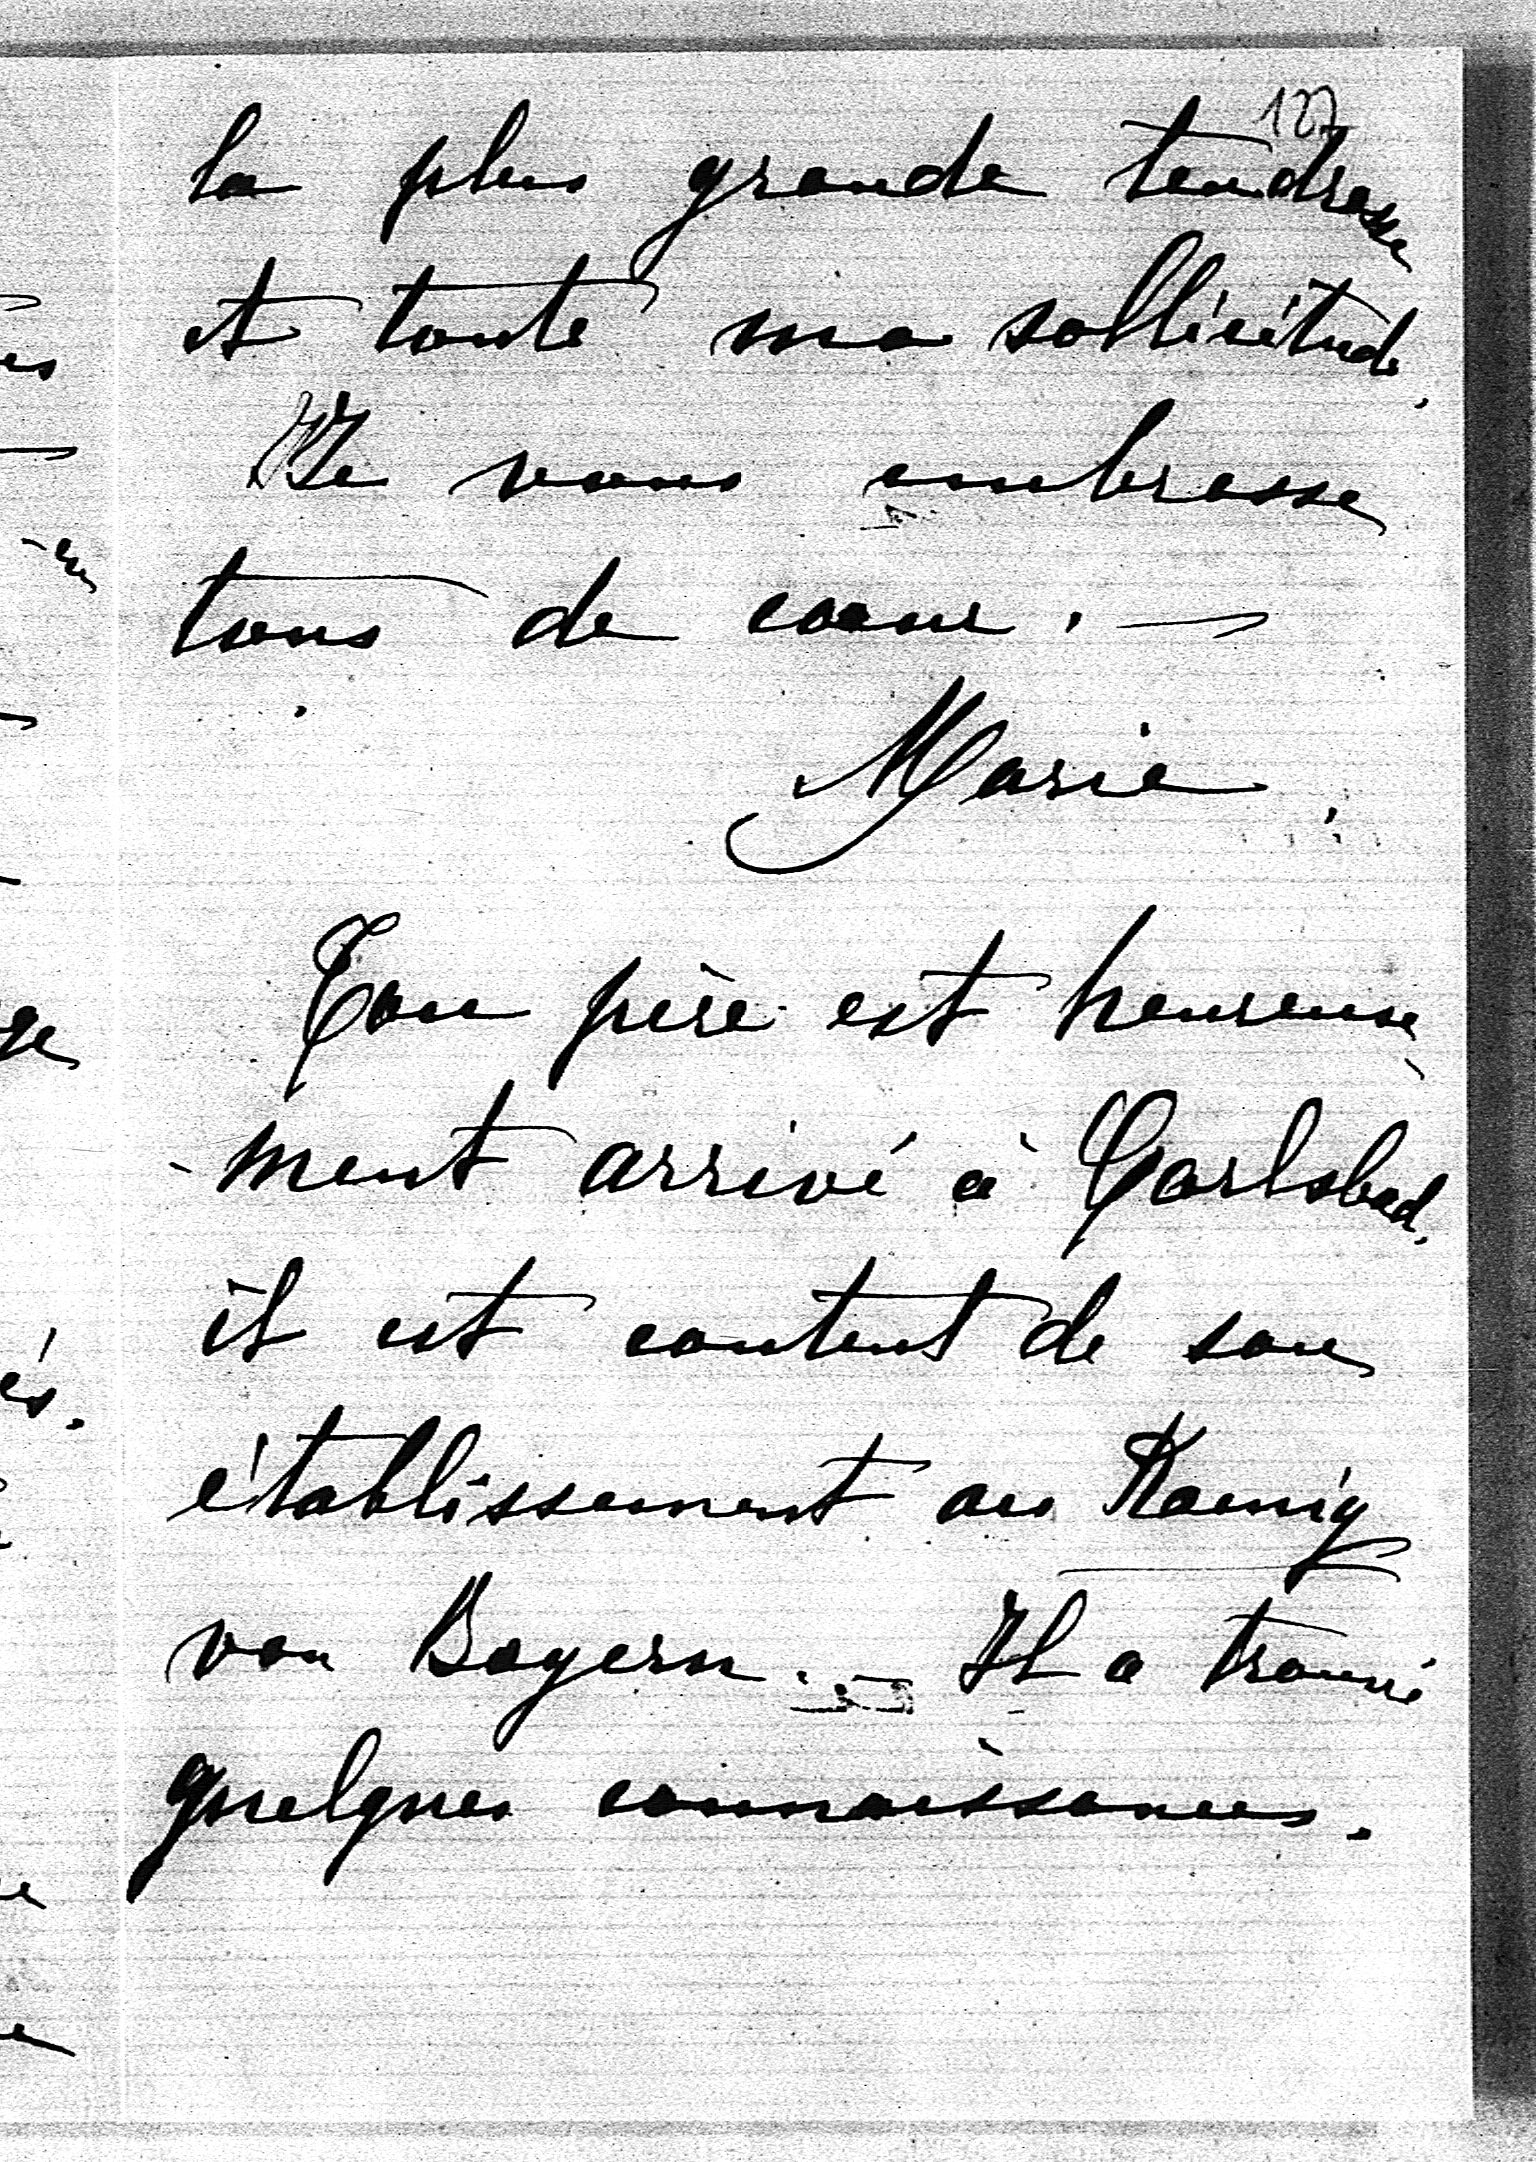 127
la plus grande tendresse
et toute ma sollicitude.
Je vous embrasse
tous de coeur. —
Marie.
Ton père est heureuse-
-ment arrivé à Carlsbad,
il est content de son
établissement au Koenig
von Bayern. — Il a trouvé
quelques connaissances.